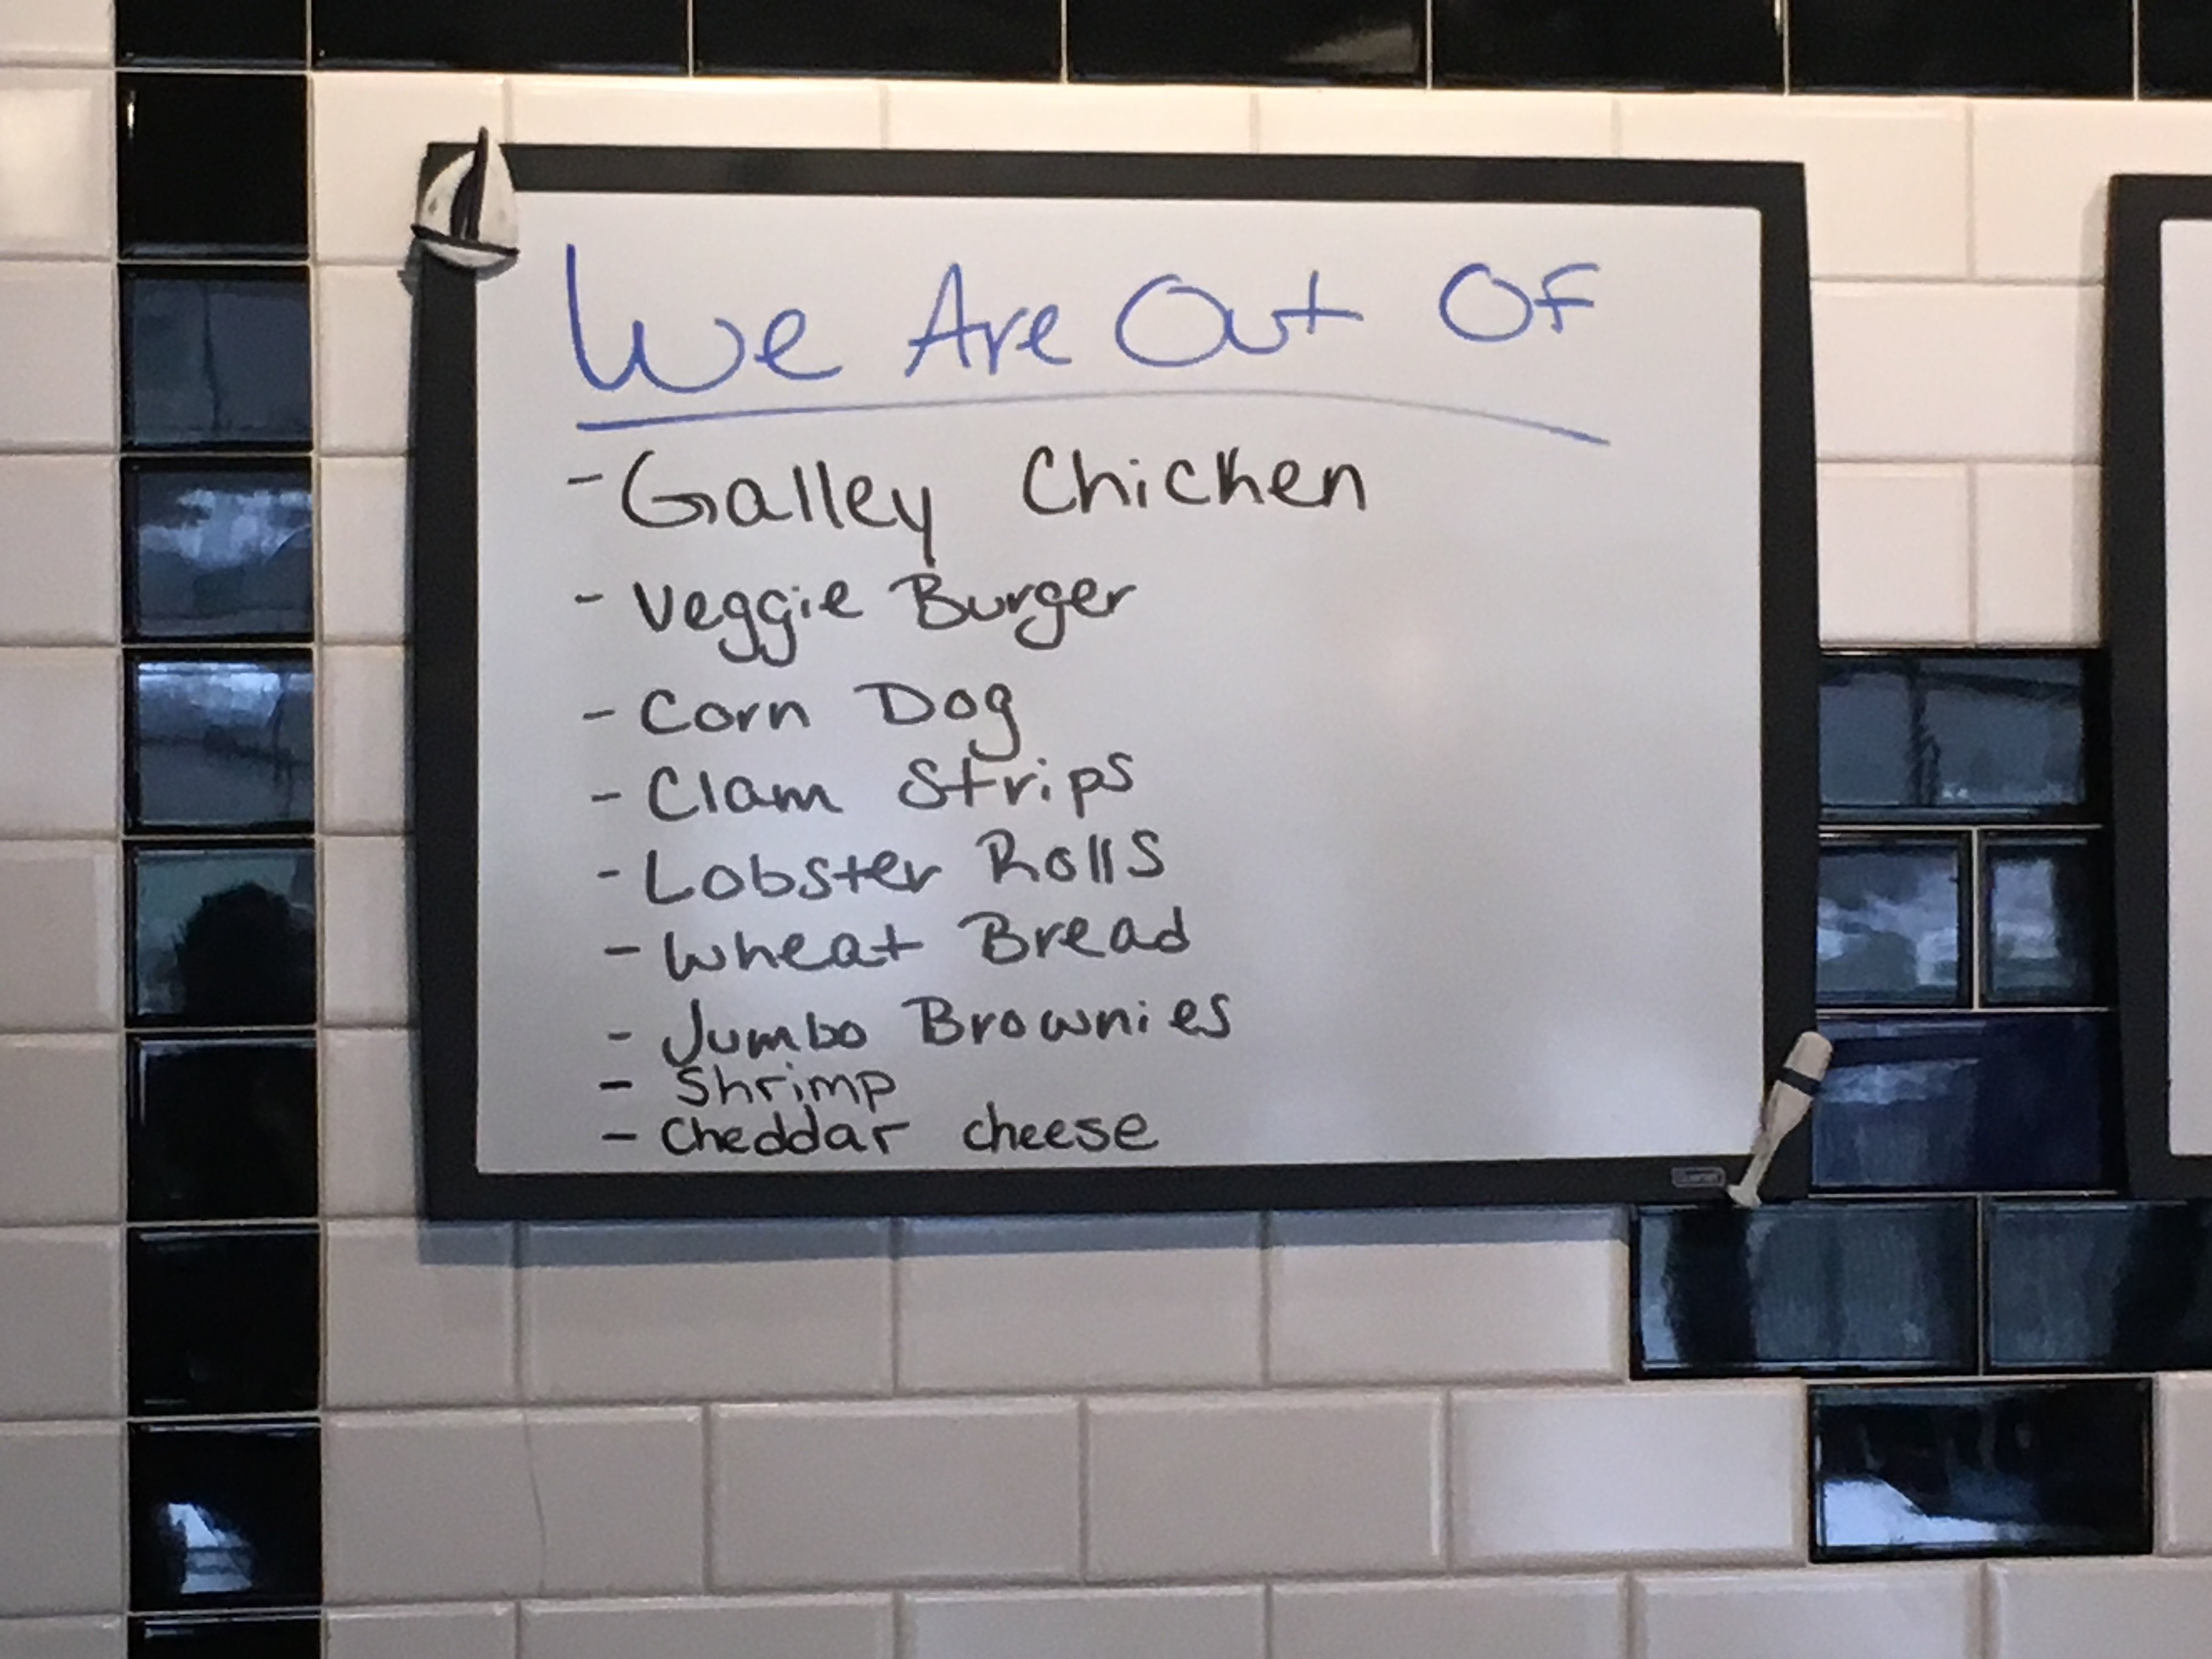 We Are Out Of
- Galley Chicken
- Veggie Burger
- Corn Dog
- Clam Strips
- Lobster Rolls
- Wheat Bread
- Jumbo Brownies
- Shrimp
- Cheddar cheese